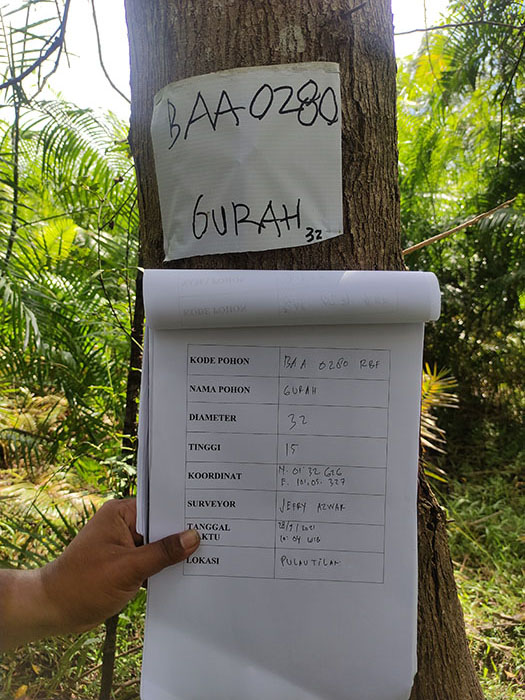 BAA 0280
GURAH
32
KODE POHON BAA 0280 RBF
NAMA POHON GURAH
DIAMETER 32
TINGGI 15
KOORDINAT N. 01 32 626
E. 101.05. 327
SURVEYOR JEFRY AZWAR
TANGGAL
WIB
LOKASI PULAU TILAN